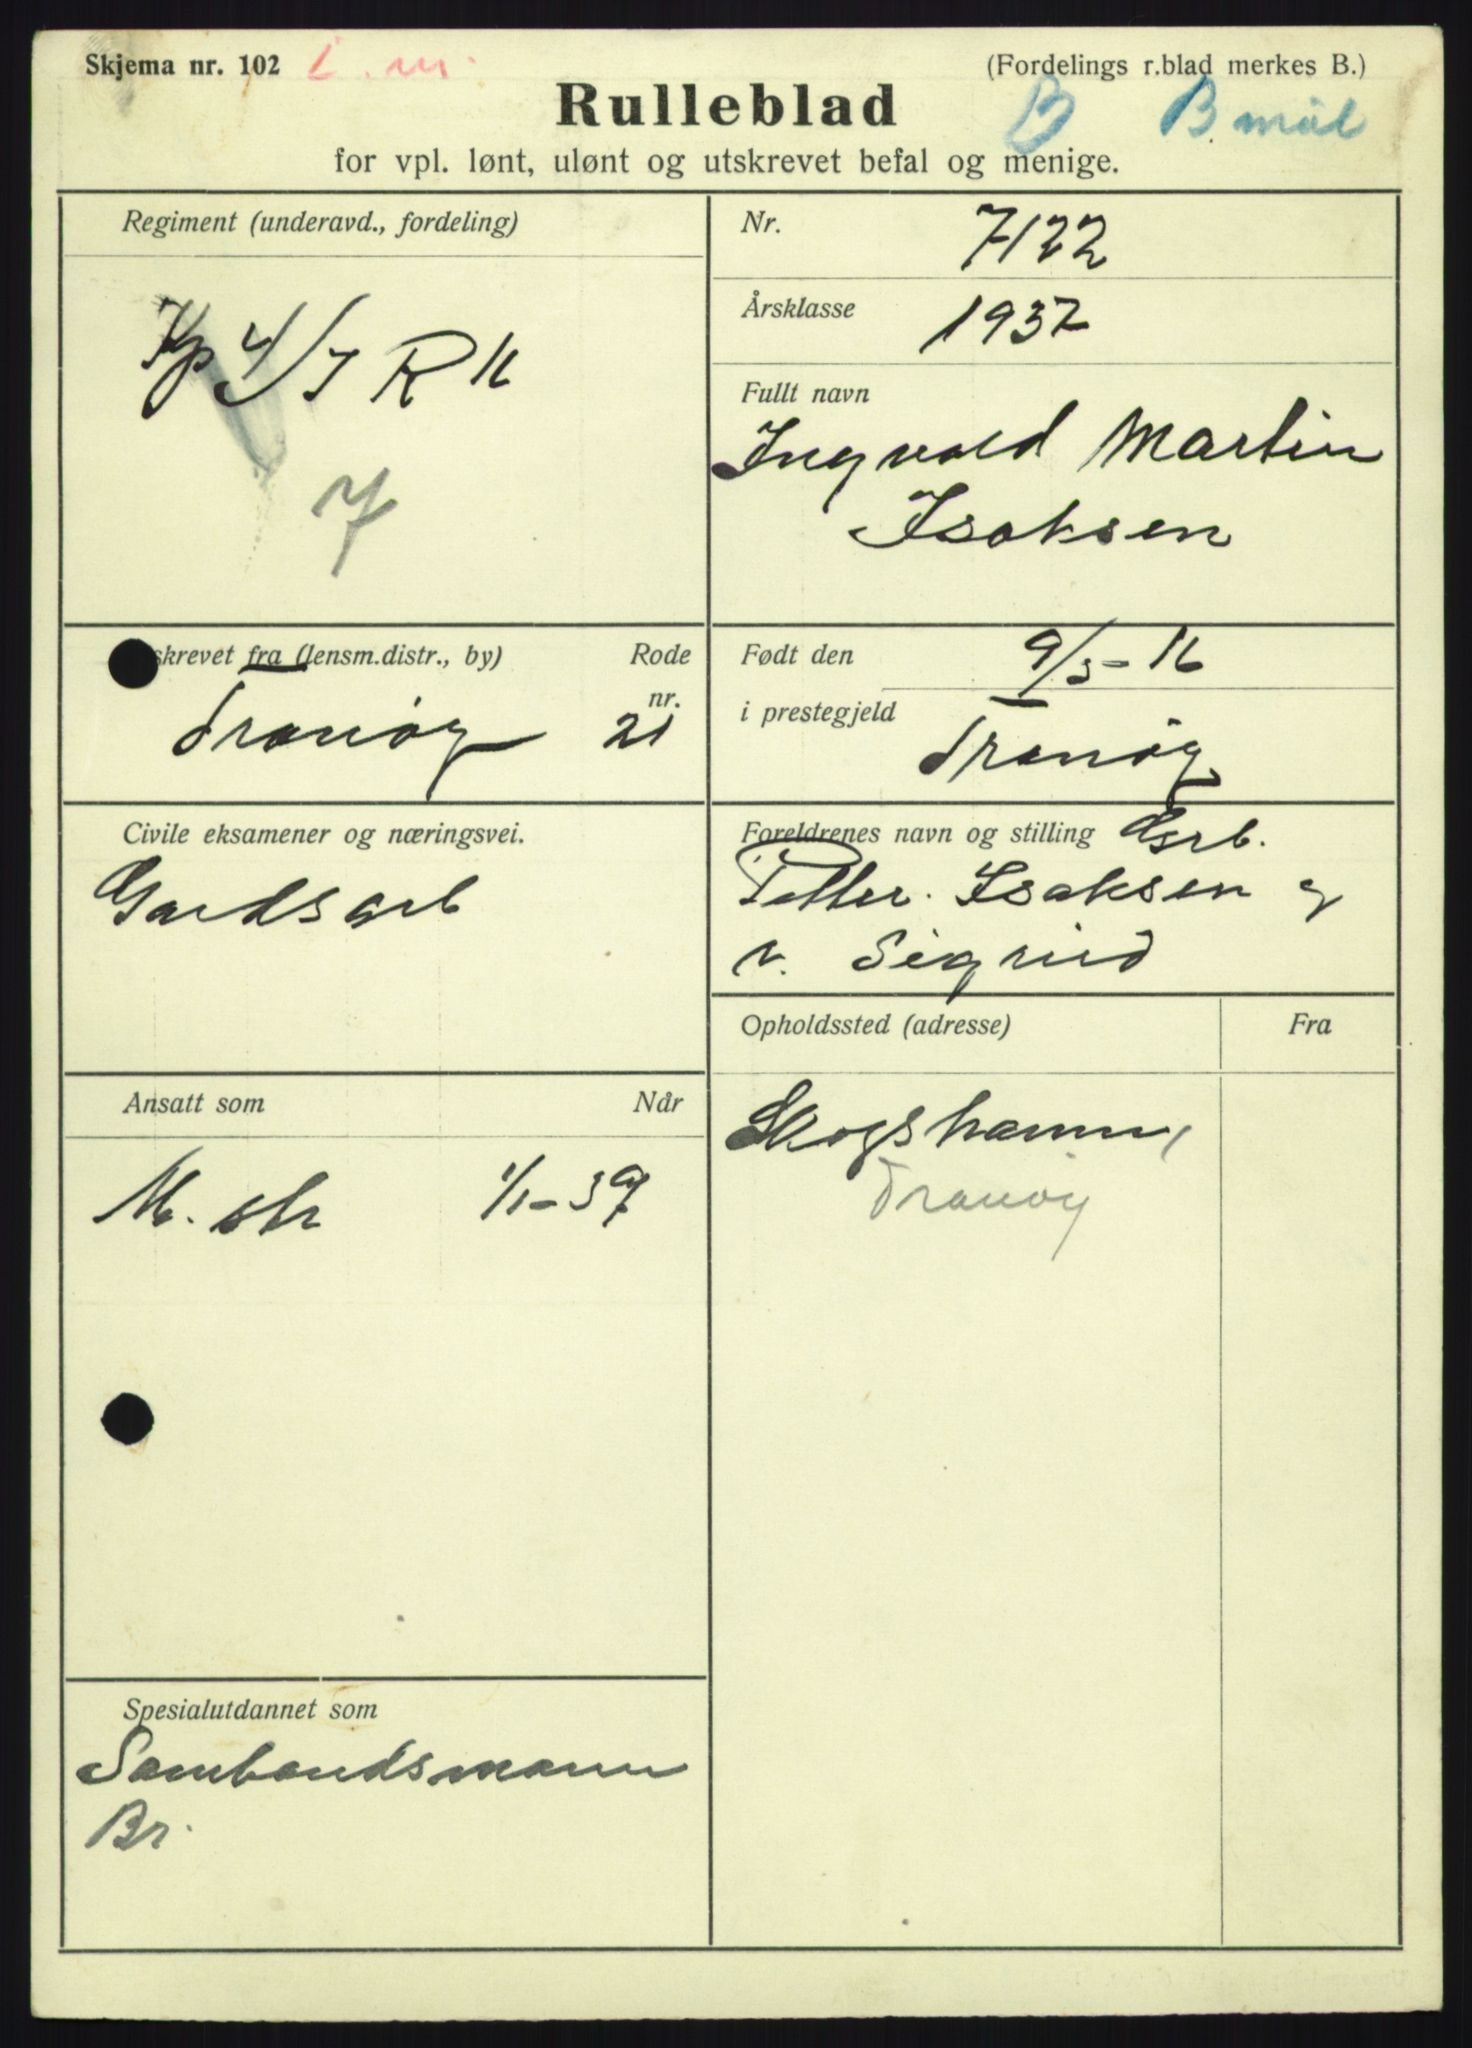 Skjema nr. 102
(Fordelings r.blad merkes B.)
Rulleblad
B B mål
for vpl. lønt, ulønt og utskrevet befal og menige.
Regiment (underavd., fordeling)
Kp 4/I R 16
7
Nr. 7122
Årsklasse 1937
Fullt navn
Ingvald Martin
Isaksen
skrevet fra (lensm.distr., by) Rode
nr.
Tranøy 21
Født den 9/3-16
i prestegjeld
Tranøy
Civile eksamener og næringsvei.
Gardsarb
Foreldrenes navn og stilling Gsrb.
Petter Isaksen og
v. Sigrid
Ansatt som Når
M. str 1/1-37
Opholdssted (adresse) Fra
Skogshamn,
Tranøy
Spesialutdannet som
Sambandsmann
Br.